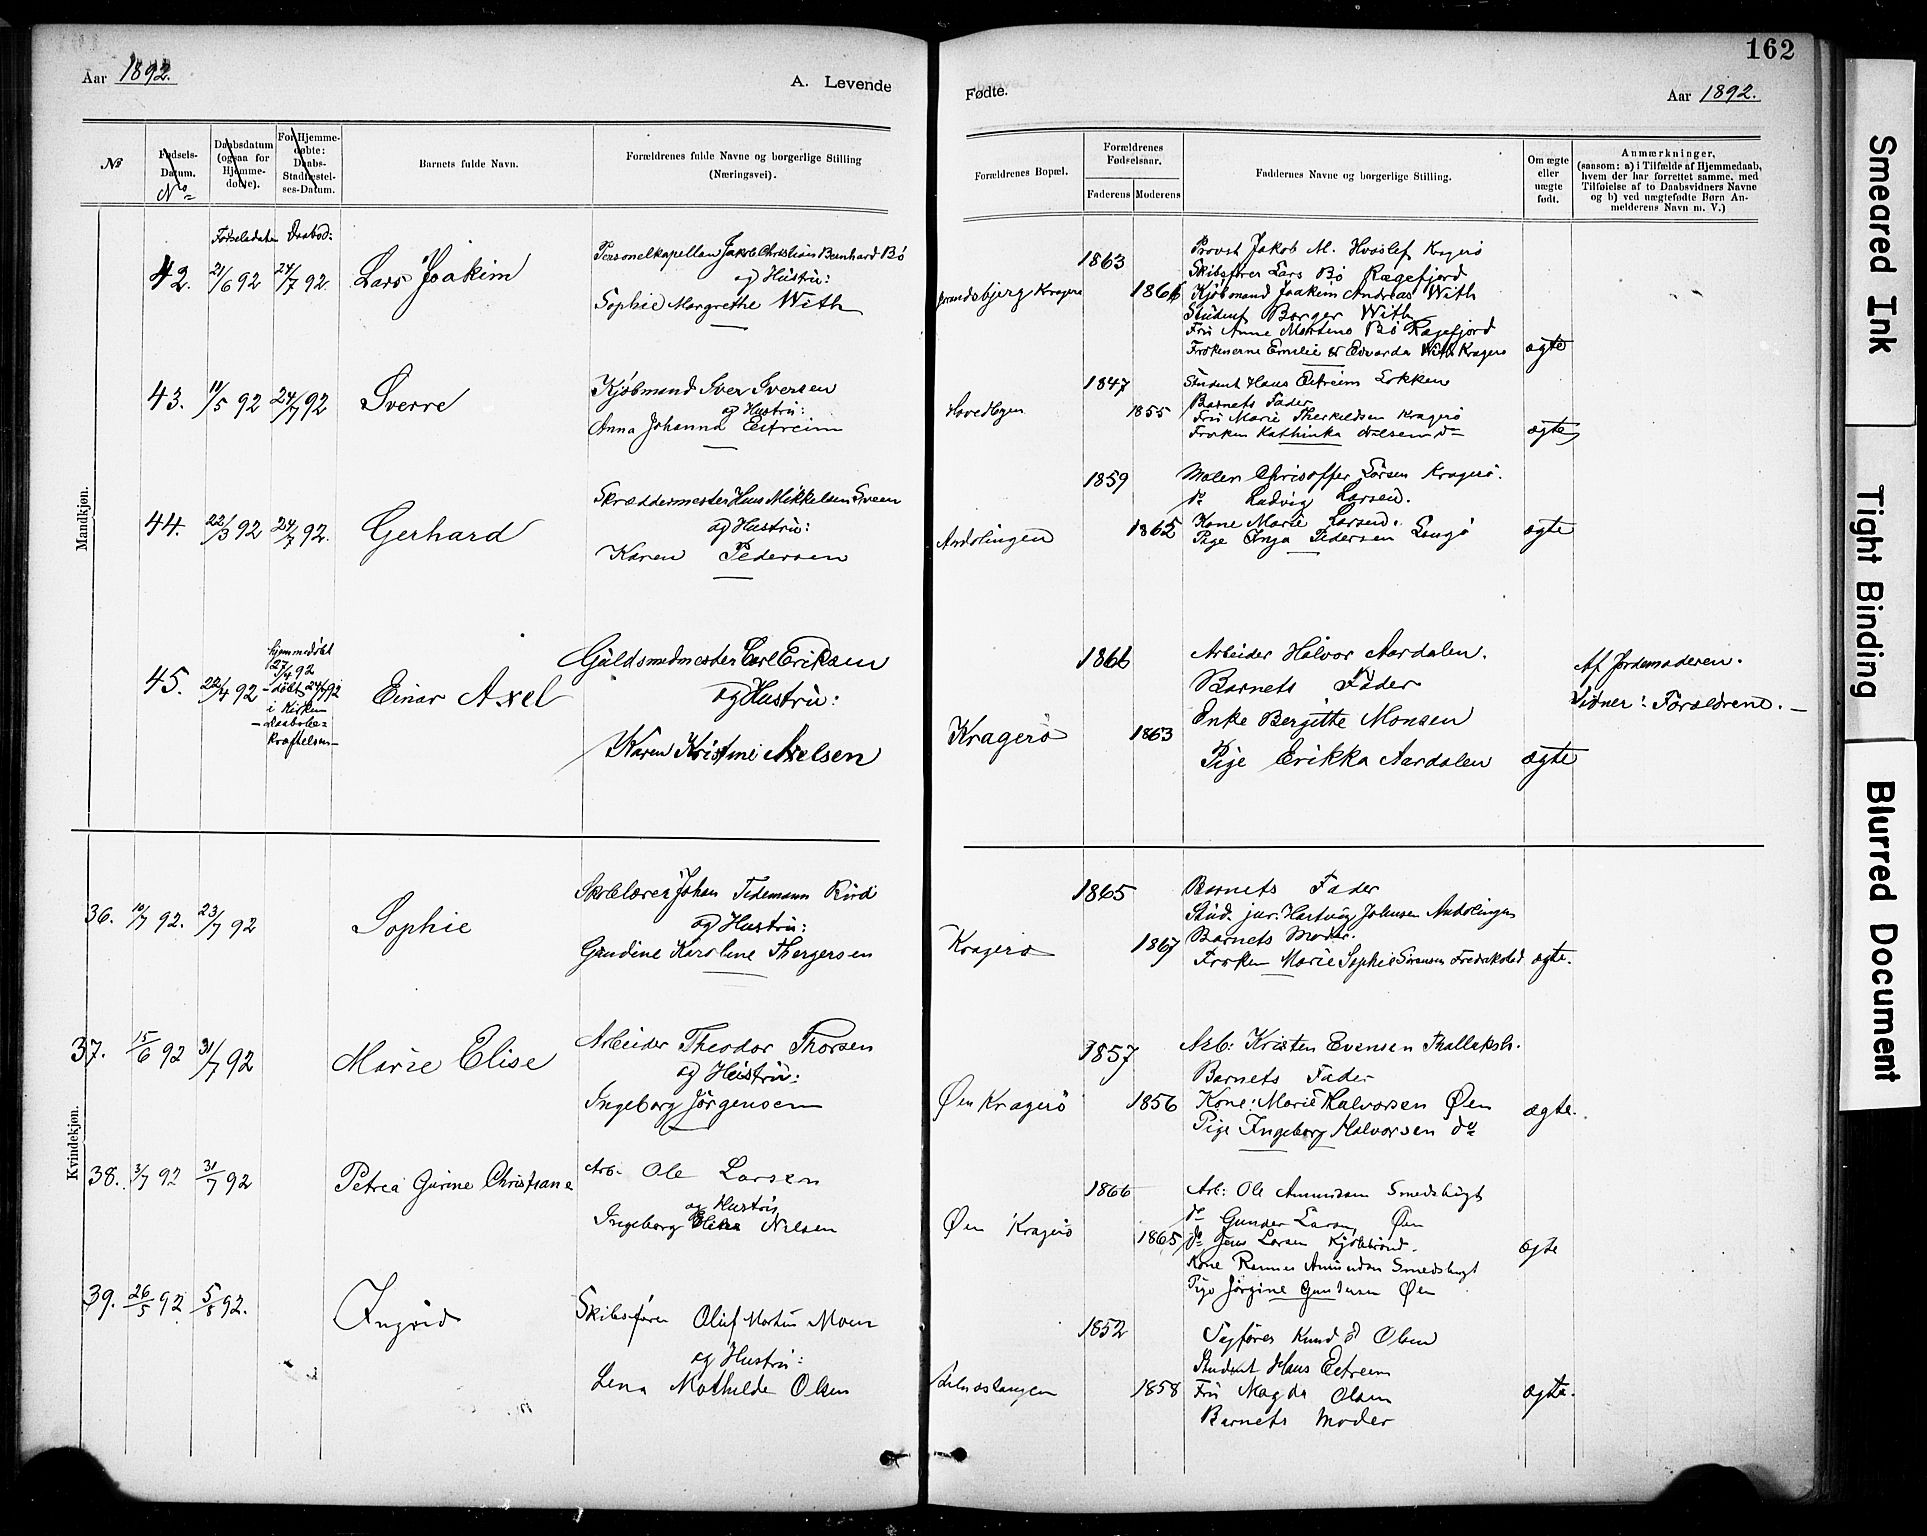 162
Aar 1892.
A. Levende
Fødte.
Aar 1892.
No
Fødsels-Datum.
No
Daabsdatum (ogsaa for Hjemmedøbte).
For Hjemmedøbte: Daabs-Stadfæstelses-Datum.
Barnets fulde Navn.
Forældrenes fulde Navne og borgerlige Stilling (Næringsvei).
Forældrenes Bopæl.
Forældrenes Fødselsaar.
Faderens
Moderens
Faddernes Navne og borgerlige Stilling.
Om ægte eller uægte født.
Anmærkninger, (saasom: a) i Tilfælde af Hjemmedaab, hvem der har forrettet samme, med Tilføielse af to Daabsvidners Navne og b) ved uægtefødte Børn Anmelderens Navn m. V.)
Mandkjøn.
Fødselsdatum Daabsd:
42. 21/6 92 24/7 92 Lars Joakim
Personelkapellan Jakob Christian Bernhard Bö
og Hustru:
Sophie Margrethe With
Kragerö
1863
1866
Provst Jakob M. Hvoslef Kragerö
Skibsförer Lars Bö Rægefjord
Kjöbmand Joakim Andreas With
Student Borger With
Fru Anne Martine Bö Rægefjord
Frökenerne Emilie & Edvarda With Kragerö
ægte
43. 11/5 92 24/7 92 Sverre
Kjöbmand Iver Iversen
og Hustru:
Anna Johanna Eitreim
1847
1855
Student Hans Eitreim Lökken
Barnets Fader
Fru Marie Therkildsen Kragerö
Fröken Kathinka Nilsen do
ægte
44. 22/3 92 24/7 92. Gerhard
Skræddermester Hans Mikkelsen Sveen
og Hustru:
Karen Pedersen
Andölingen
1859
1865
Maler Chrisoffer Larsen Kragerö.
do Ludvig Larsen.
Kone Marie Larsen.
Pige Inga Pedersen Langö
ægte
45. 22/4 92
hjemmedöbt
27/4 92
döbt 24/7 92
i Kirken
Einar Axel
Guldsmedmester Carl Eriksen
og Hustru:
Karen Kristine Axelsen
Kragerö
1866
1863
Arbeider Halvor Aardalen.
Barnets Fader
Enke Bergitte Monsen
Pige Erikka Aardalen
ægte
Af Jordemoderen.
Vidner: Forældrene.
Kvindekjøn.
36. 10/7 92. 23/7 92 Sophie
Skolelærer Johan Tidemann Ruud
og Hustru:
Gundine Karoline Thergersen
Kragerö
1865
1867
Barnets Fader
Stud. jur. Hartvig Johnsen Andölingen
Barnets Moder.
Fröken Marie Sophie Sörensen Fredrikstad
ægte.
37. 15/6 92 31/7 92 Marie Elise
Arbeider Theodor Thorsen
og Hustru:
Ingeborg Jörgensen
Öen Kragerö
1857
1856
Arb: Kristen Evensen
Barnets Fader
Kone: Marie Halvorsen Öen
Pige Ingeborg Halvorsen do
ægte.
38. 3/7 92 31/7 92 Petrea Gurine Christiane
Arb. Ole Larsen
og Hustru
Ingeborg Nilsen
Öen Kragerö
1866
1865
Arb: Ole Amundsen Smedsbugt
do Gunder Larsen, Öen
do Jens Larsen
Kone Amundsen Smedsbugt
Pige Jörgine Gundersen Öen
ægte
39. 26/5 92 5/8 92. Ingrid
Skibsförer Oluf Martin Moen
og Hustru:
Lena Mathilde Olsen
1852
1858
Sagförer Knud Olsen
Student Hans Eitreim
Fru Magda Olsen
Barnets Moder
ægte.
Smeared Ink
Tight Binding
Blurred Document